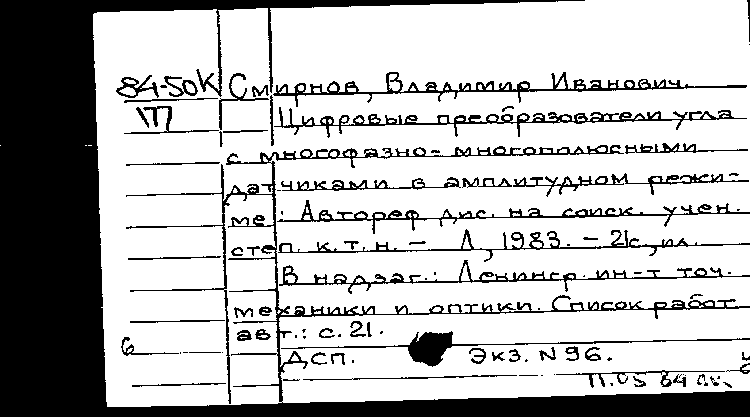 84-50К Смирнов, Владимир Иванович.
177 Цифровые преобразователи угла
с многофазно-многополюсными
датчиками в амплитудном режи-
ме : Автореф дис. на соиск. учен.
степ. к.т.н. – Л, 1983. – 21с., ил.
В надзаг.: Ленингр. ин-т точ.
механики и оптики. Список работ
авт.: с. 21.
6 ДСП. Экз. N 96.
11.05 84